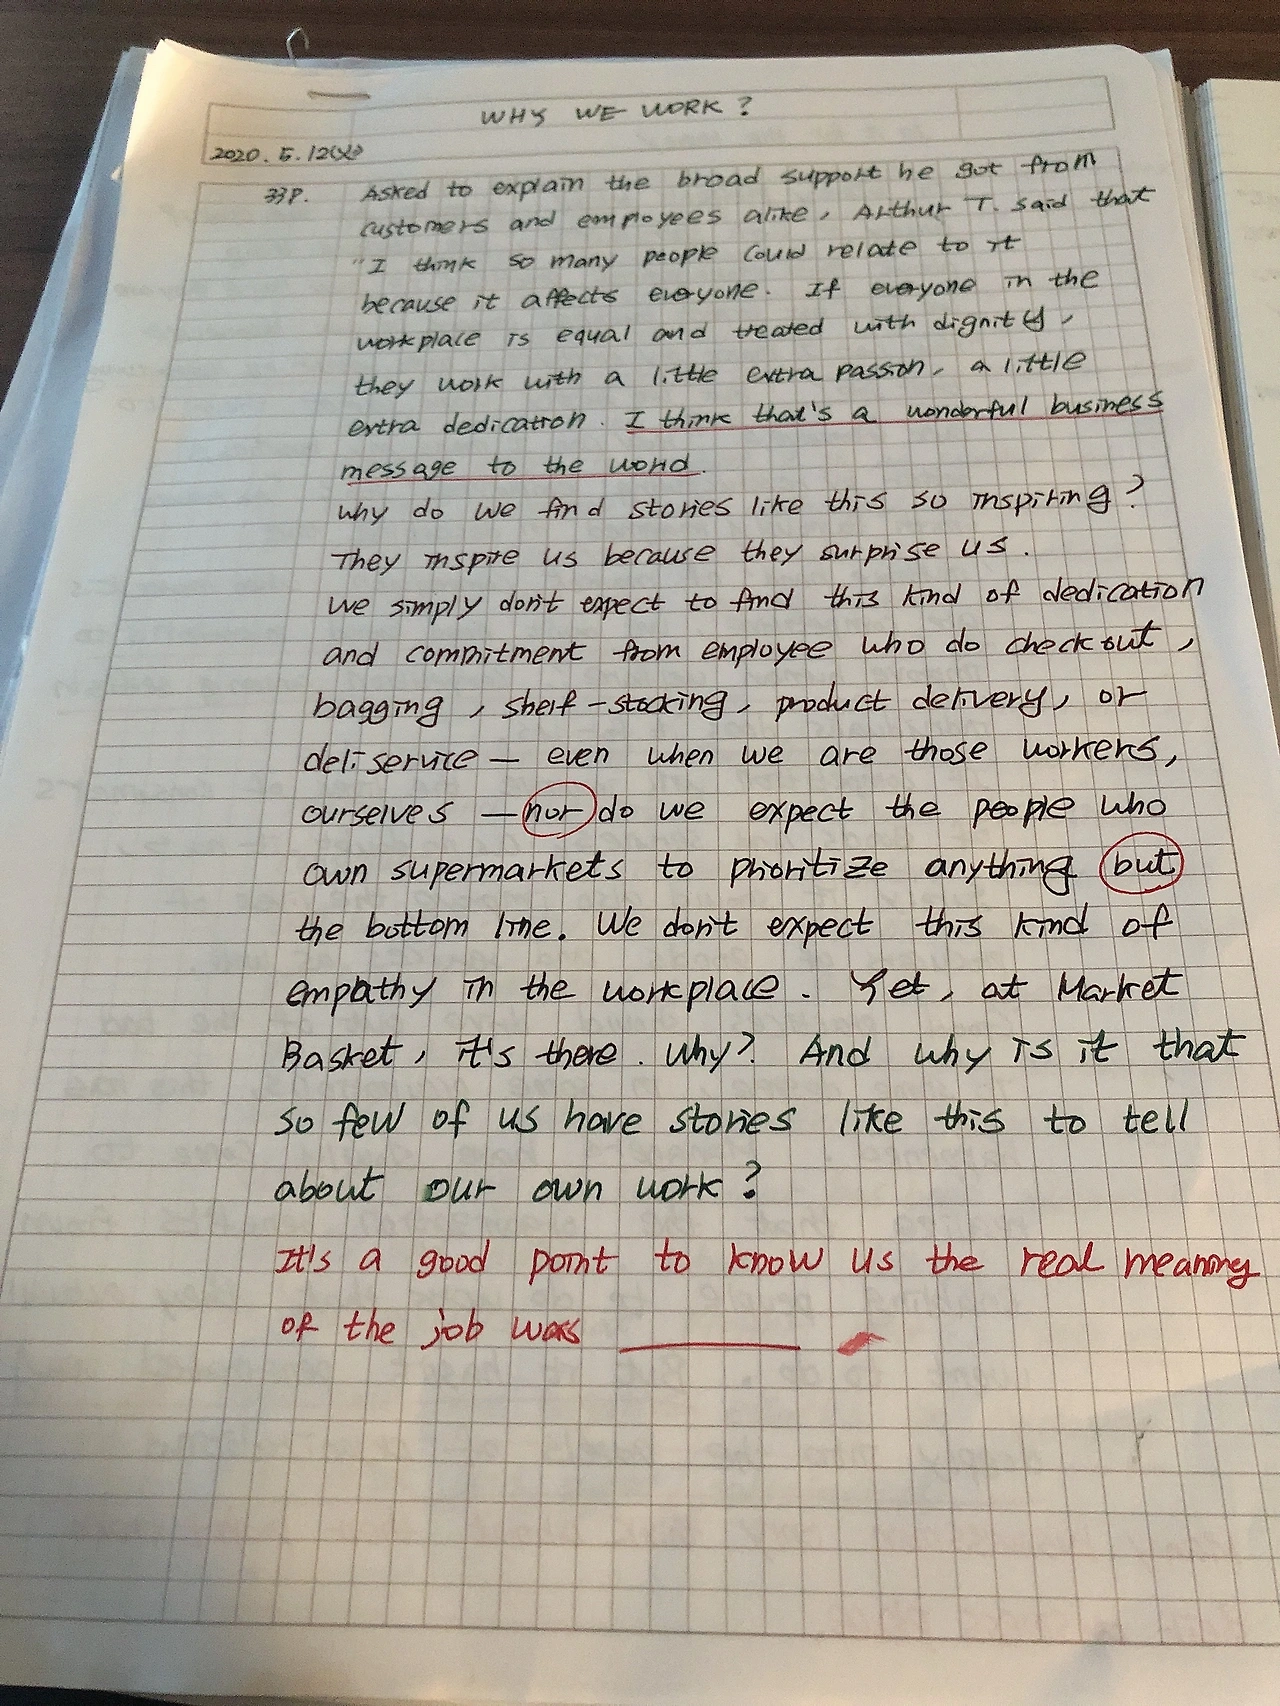 WHY WE WORK?
2020. 5. 12(火)
33P.
Asked to explain the broad support he got from
customers and employees alike, Arthur T. said that
"I think so many people could relate to it
because it affects everyone. If everyone in the
workplace is equal and treated with dignity,
they work with a little extra passion, a little
extra dedication. I think that's a wonderful business
message to the world.
Why do we find stories like this so inspiring?
They inspire us because they surprise us.
We simply don't expect to find this kind of dedication
and commitment from employee who do check out,
bagging, shelf-stocking, product delivery, or
deli service — even when we are those workers,
ourselves — nor do we expect the people who
own supermarkets to prioritize anything but
the bottom line. We don't expect this kind of
empathy in the workplace. Yet, at Market
Basket, it's there. Why? And why is it that
so few of us have stories like this to tell
about our own work?
It's a good point to know us the real meaning
of the job was